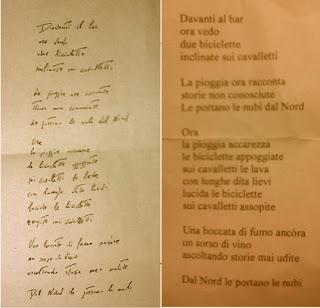 Davanti al bar
ora vedo
due biciclette
inclinate sui cavalletti.
La pioggia ora racconta
storie non conosciute
Le portano le nubi dal Nord
Ora
la pioggia accarezza
le biciclette appoggiate
sui cavalletti le lava
con lunghe dita lievi
lucida le biciclette
sui cavalletti
Una boccata di fumo ancora
un sorso di vino
ascoltando storie mai udite
Dal Nord le portano le nubi
Davanti al bar
ora vedo
due biciclette
inclinate sui cavalletti
La pioggia ora racconta
storie non conosciute
Le portano le nubi dal Nord
Ora
la pioggia accarezza
le biciclette appoggiate
sui cavalletti le lava
con lunghe dita lievi
lucida le biciclette
sui cavalletti assopite
Una boccata di fumo ancóra
un sorso di vino
ascoltando storie mai udite
Dal Nord le portano le nubi